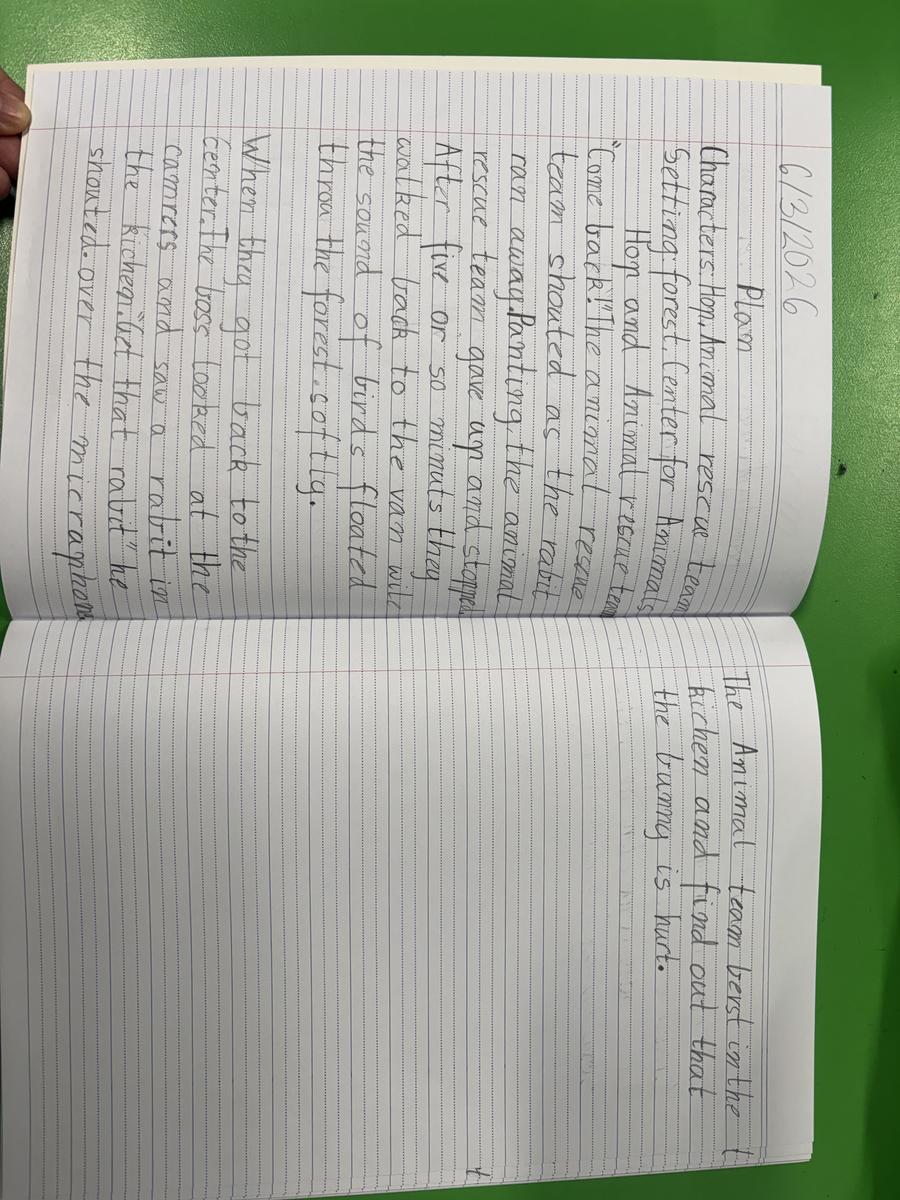 6/3/2026
Plan
Characters: Hop, Animal rescue team
Setting: forest, Center for Animals
Hop and Animal rescue team
"Come back!" The animal rescue
team shouted as the rabit
ran away. Panting, the animal
rescue team gave up and stopped.
After five or so minuts they
walked back to the van wile
the sound of birds floated
throa the forest. softly.
When they got back to the
center. The boss looked at the
camrers and saw a rabit in
the kichen. "Get that rabit" he
shouted. over the micraphone
The Animal team berst in the t
kichen and find out that
the bunny is hurt.
t